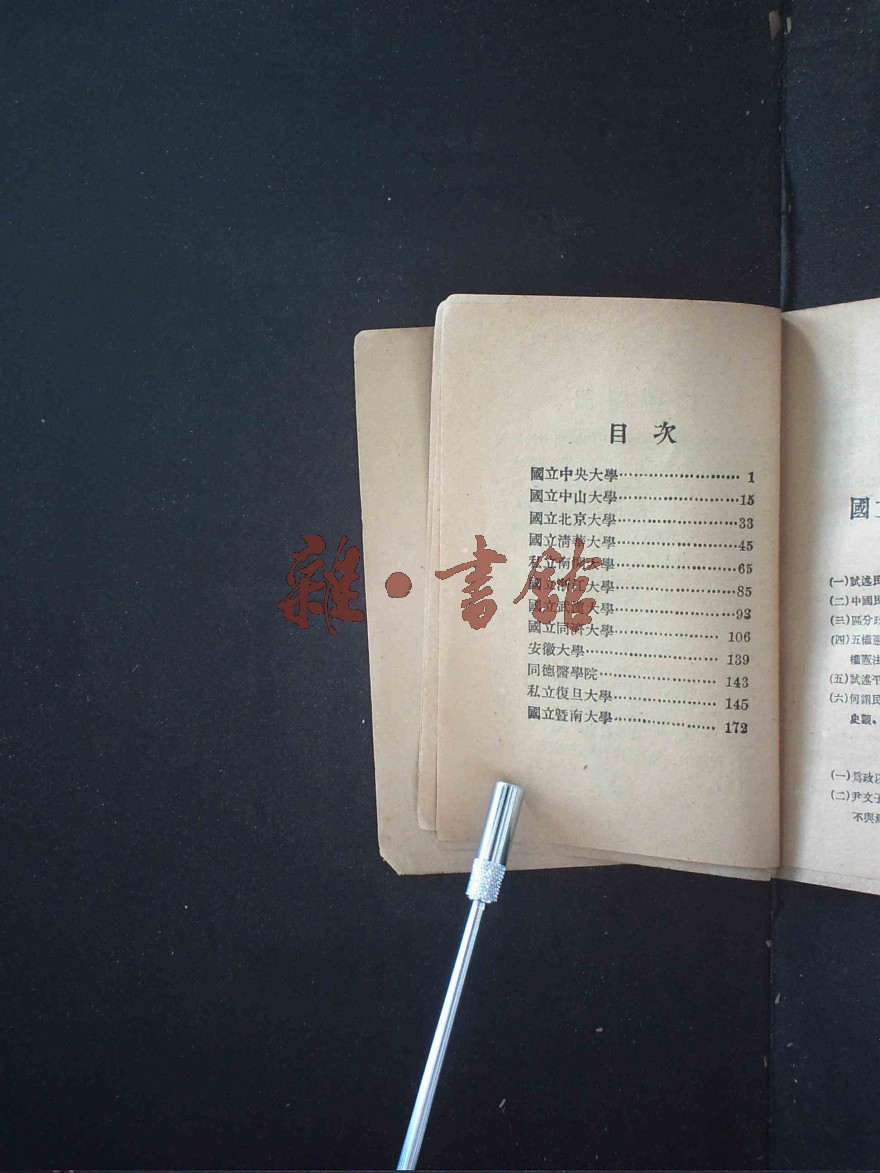 目次
國立中央大學……………………… 1
國立中山大學………………………15
國立北京大學………………………33
國立清華大學………………………45
私立南開大學………………………65
國立浙江大學………………………85
國立武漢大學………………………93
國立同濟大學…………………… 106
安徽大學………………………… 139
同德醫學院……………………… 143
私立復旦大學…………………… 145
國立暨南大學…………………… 172
雜·書館
國立
(一)試述民
(二)中國民
(三)區分政
(四)五權憲
權憲法
(五)試述平
(六)何謂民
史觀。
(一)爲政以
(二)尹文子
不與